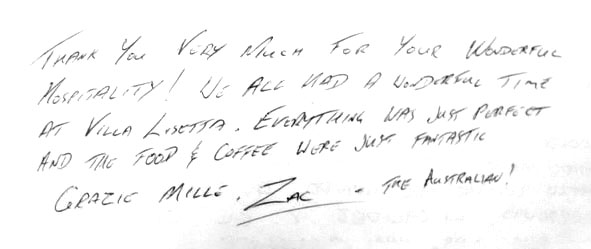 THANK YOU VERY MUCH FOR YOUR WONDERFUL
HOSPITALITY! WE ALL HAD A WONDERFUL TIME
AT VILLA LISETTA. EVERYTHING WAS JUST PERFECT
AND THE FOOD & COFFEE WERE JUST FANTASTIC
GRAZIE MILLE. ZAC - THE AUSTRALIAN!